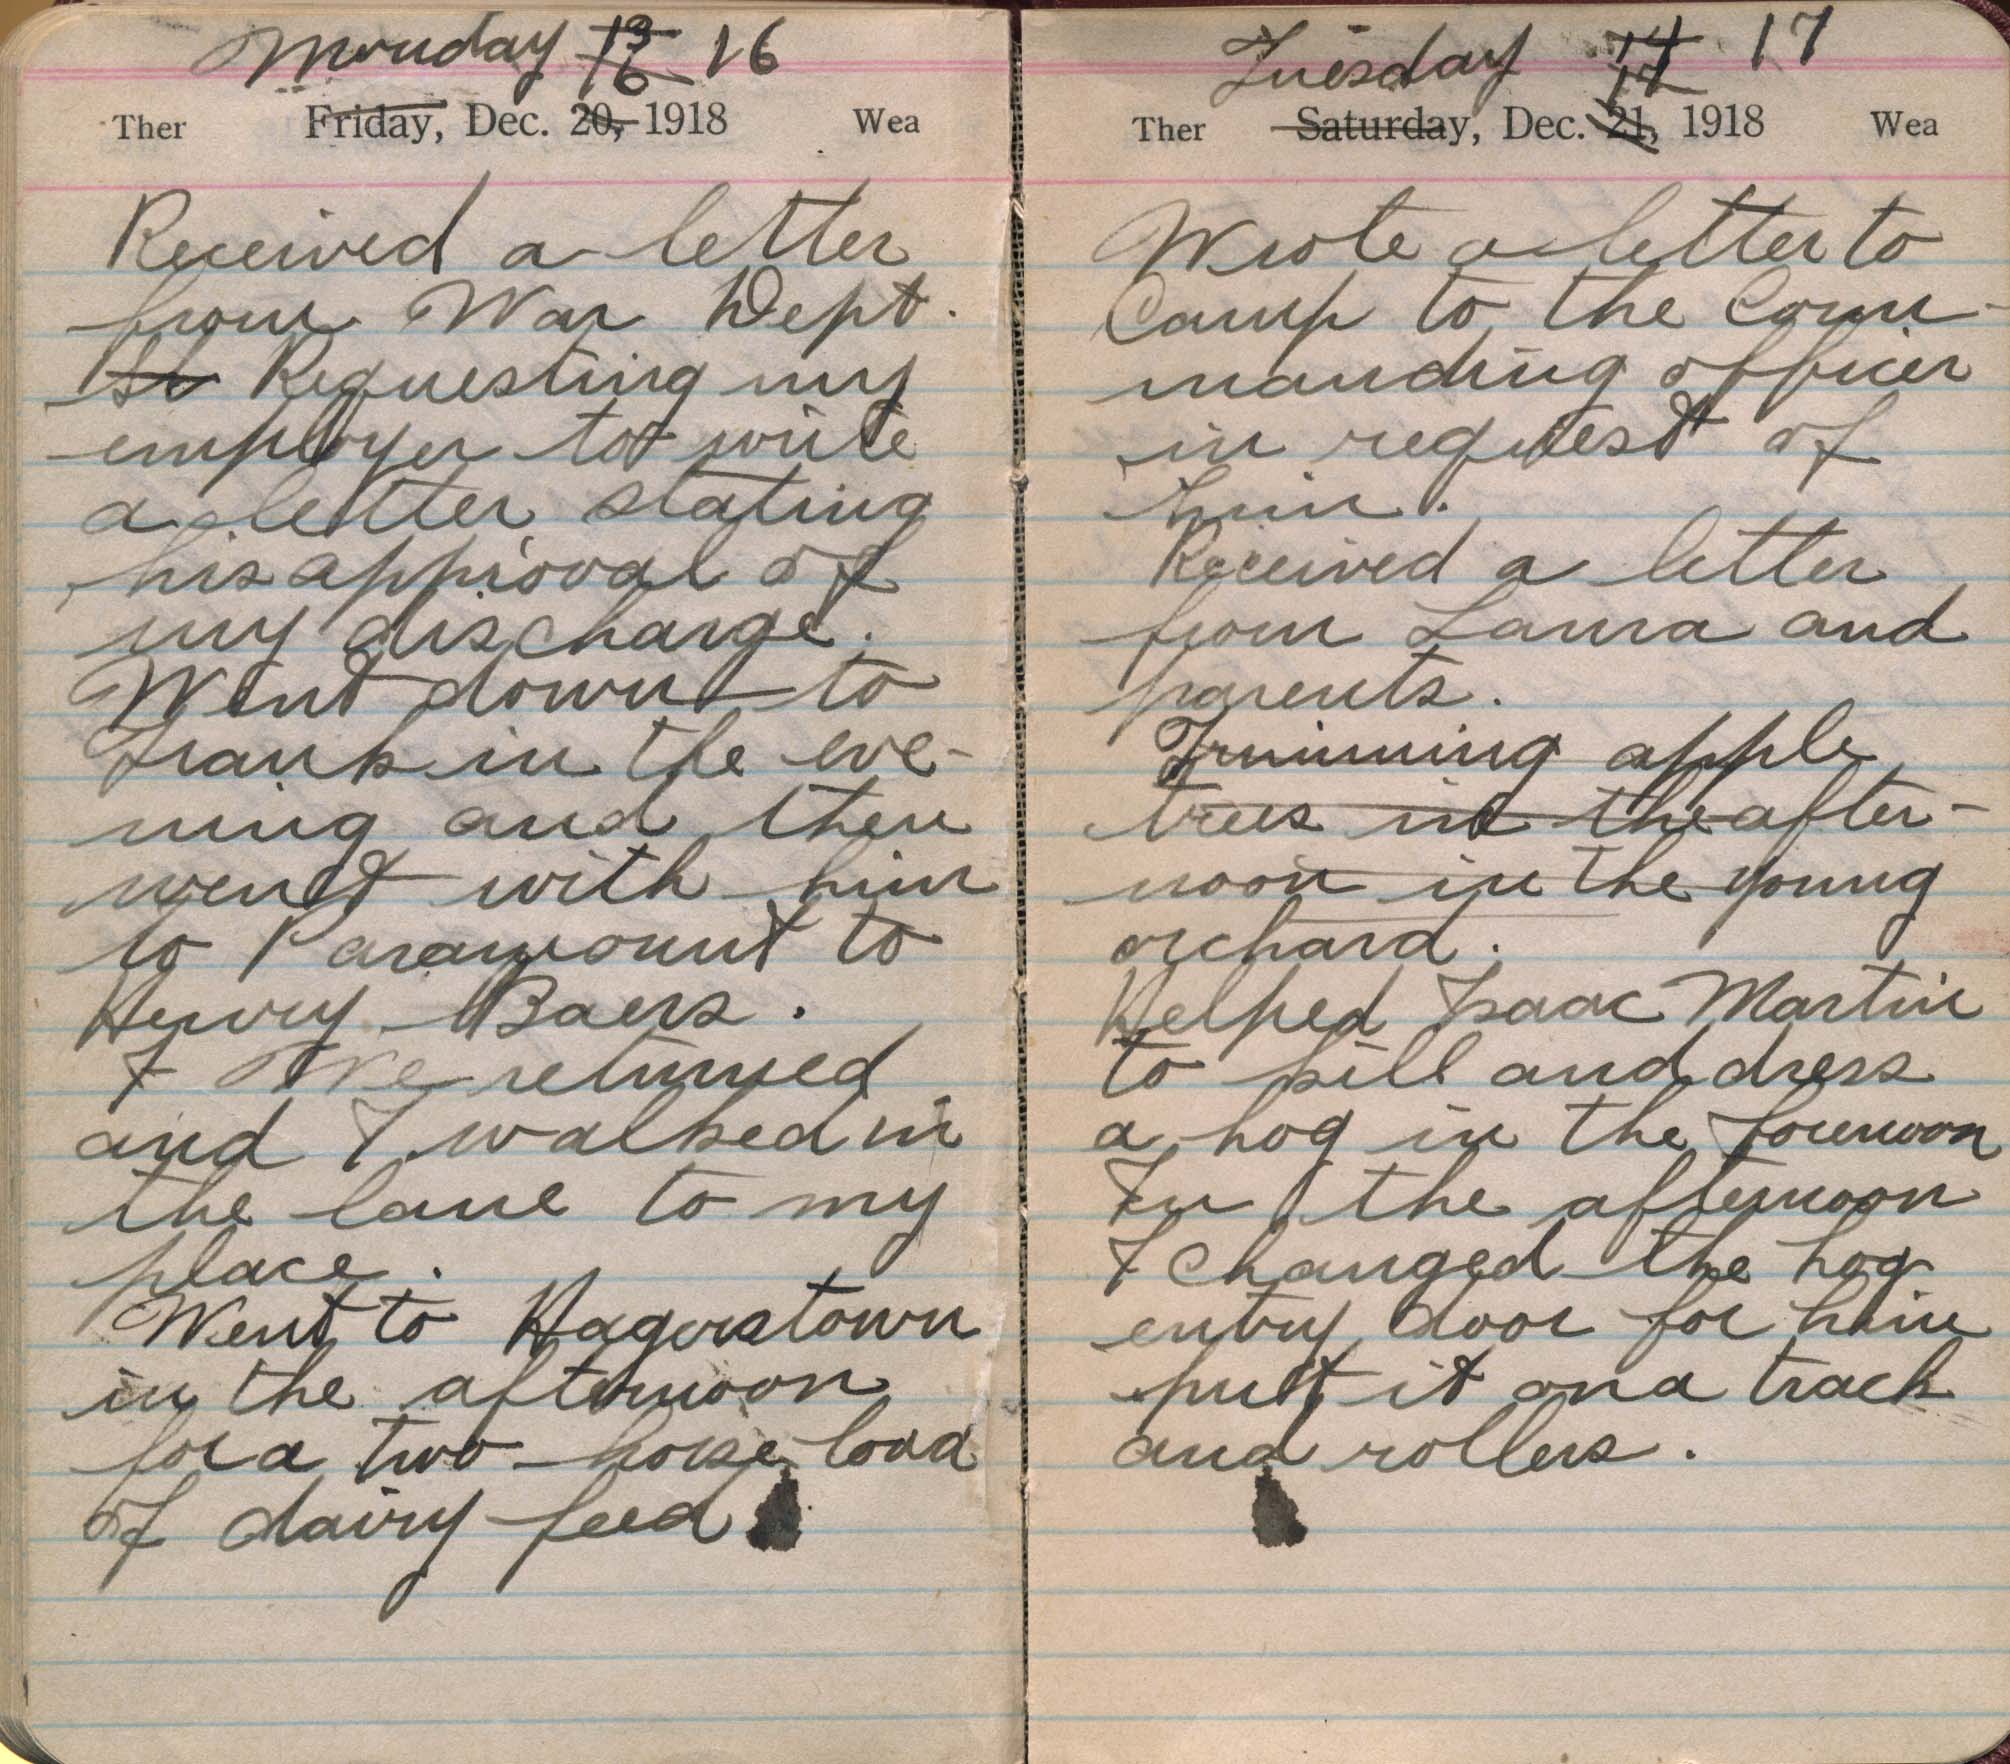 Monday 13 16 16
Ther Friday, Dec. 20, 1918 Wea
Received a letter
from War Dept.
Requesting my
employer to write
a letter stating
his approval of
my discharge.
Went down to
Franks in the eve-
ning and then
went with him
to Paramount to
Henry Baers.
I We returned
and I walked in
the lane to my
place.
Went to Hagerstown
in the afternoon
for a two-horse load
of dairy feed
Tuesday 14 17 17
Ther Saturday, Dec. 21, 1918 Wea
Wrote a letter to
Camp to the Com-
manding officer
in request of
him.
Received a letter
from Laura and
parents.
Trimming apple
trees in the after-
noon in the young
orchard.
Helped Isaac Martin
to kill and dress
a hog in the forenoon
In the afternoon
I changed the hog
entry door for him
put it on a track
and rollers.